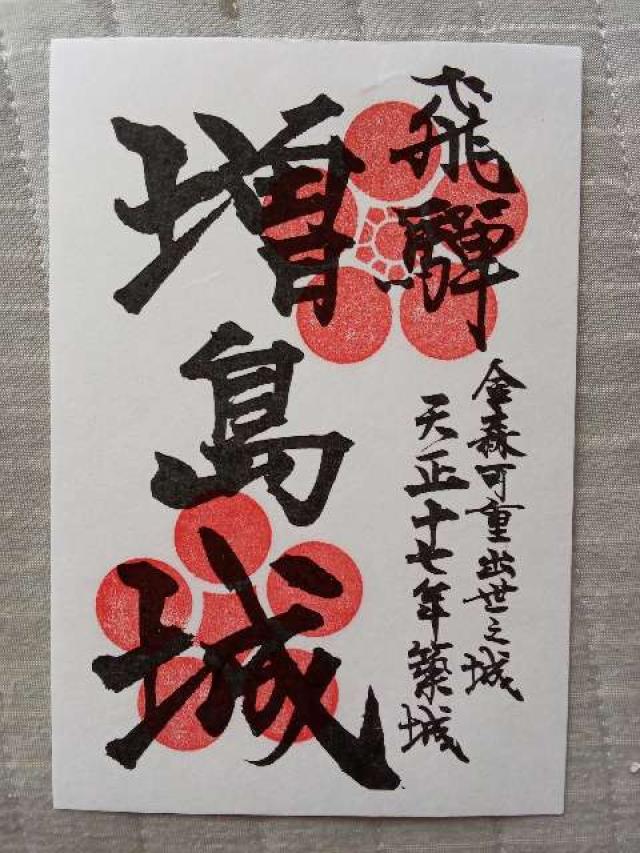 飛騨
金森可重出世之城
天正十七年築城
増島城